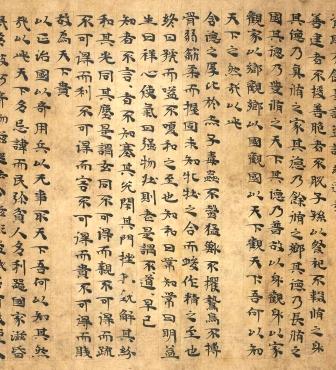 善建者不拔善脆者不脫子孫以祭祀不輟脩之身
其德乃真脩之家其德乃餘脩之鄉其德乃長脩之
其德乃豐脩之天下其德乃普故以身觀身以家
觀家以鄉觀鄉以國觀國以天下觀天下吾何以知
天下之然哉以此
含德之厚比於赤子毒蟲不螫猛獸不攫鷙鳥不搏
骨弱筋柔而握固未知牝牡之合而峻作精之至也
終日號而嗌不嗄和之至也知和曰常知常曰明益
生曰祥心使氣曰強物壯則老是謂不道早已
知者不言言者不知塞其兌閉其門挫其銳解其紛
和其光同其塵是謂玄同不可得而親不可得而疏
不可得而利不可得而害不可得而貴不可得而賤
故為天下貴
以正治國以奇用兵以無事取天下吾何以知其然
哉以此天下多忌諱而民彌貧人多利器國家滋昏